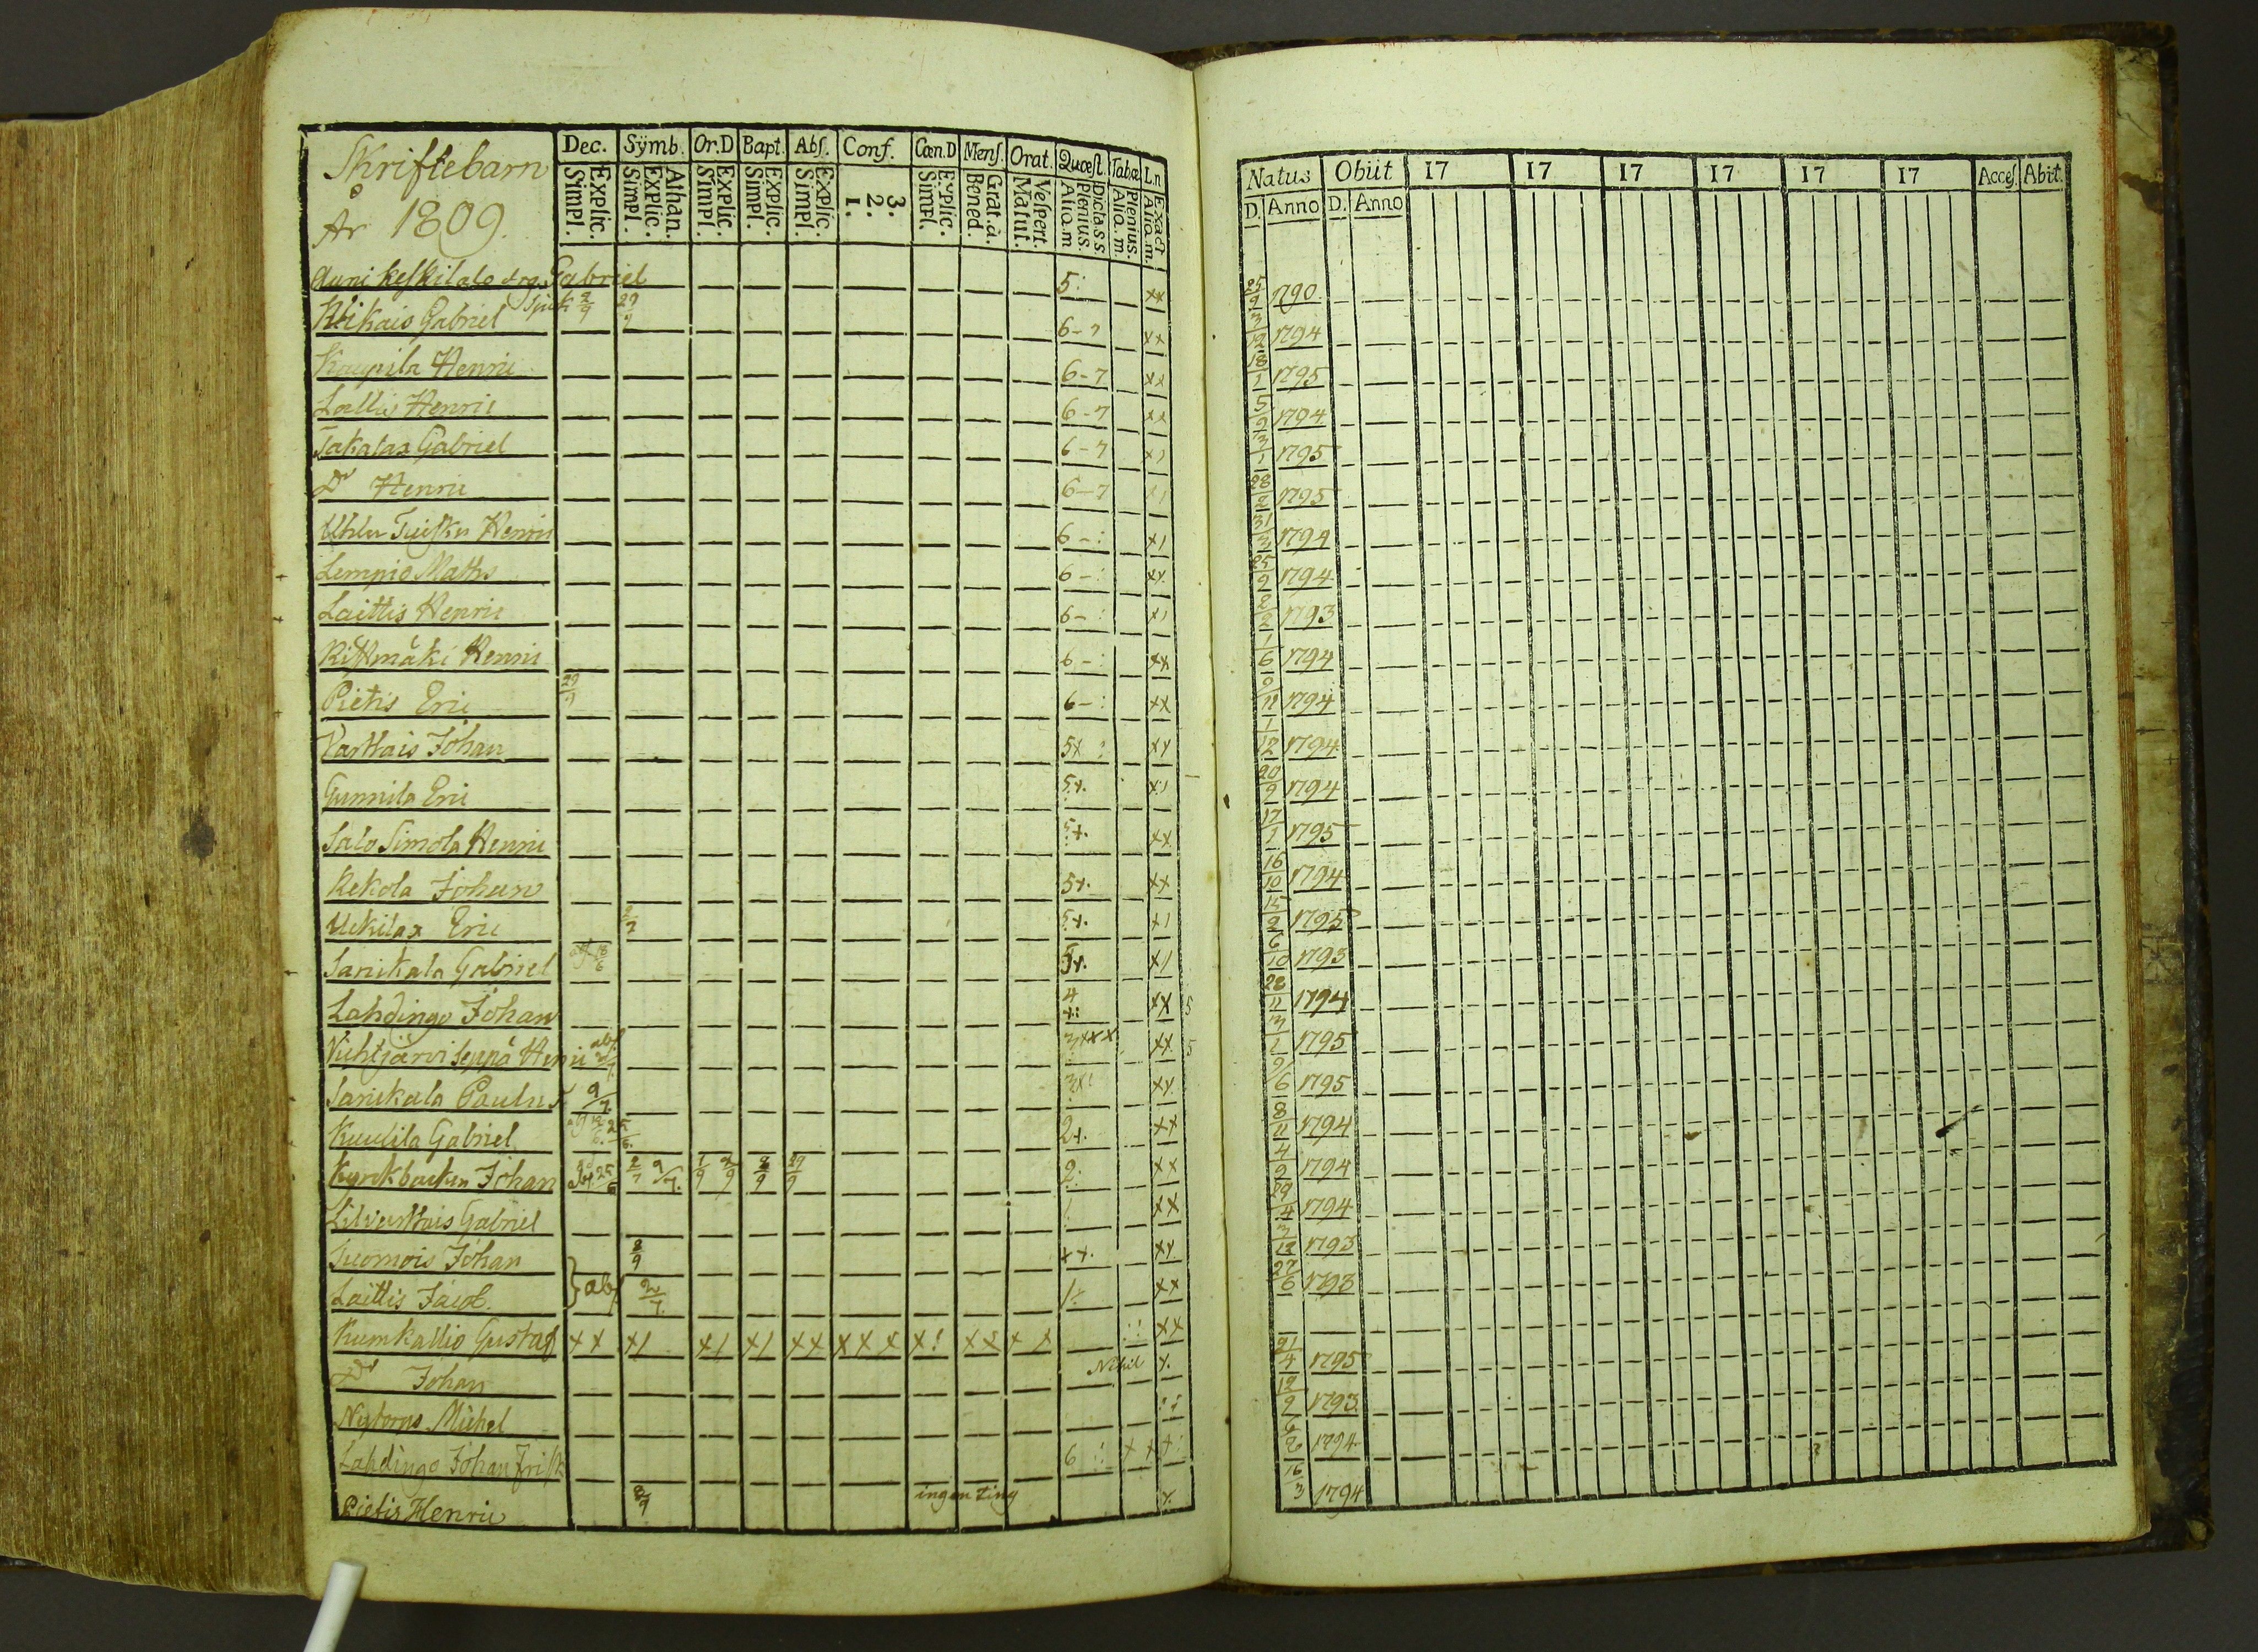 Skriftebarn
År 1809.
Dec. Sÿmb. Or.D Bapt. Abſ. Conf. Cœn.D Menſ. Orat. Quœſt. Tabœ L.n
Explic. Simpl. Athan. Explic. Simpl. Explic. Simpl. Explic. Simpl. Explic. Simpl. 3. 2. 1. Explic. Simpl. Grat.à. Bened. Veſpert. Matut. Dicta.s.s. Plenius. Alio.m Plenius. Alio.m. Exact Alio.m.
Gabriel 5: xx
Gabriel 2/9 29/9 6-7 xx
Kaupila Henric 6-7 xx
Henric 6-7 xx
Takalax Gabriel 6-7 x/
Do Henric 6-7 x/
Henric 6-: x/
Lempiö Maths 6-: xx
Laittis Henric 6-: x/
Henric 6-: xx
Pietis Eric 29/9 6-: xx
Johan 5x: xx
Gunnila Eric 5x. x/
Salo Simola Henric 5x. xx
Rekola Johan 5x. xx
Uckilax Eric 5x. x/
Sarukala Gabriel 5x. x/
Lahdingo Johan 4 x: xx 5
Vuchtjärvi Seppä Henric abſ 3xxx xx 5
Sarukala Paulus 9/7. 3x: xx
Kuulila Gabriel 2x. xx
Kyrckbacken Johan 2/9 8/9 29/9 2: xx
Gabriel xx
Tuomois Johan 8/9 xx. xx
Laittis Jacob. } abſ 2/7. 1: xx
Kumkallio Gustaf xx x/ x/ x/ xx xxx x: xx xx :: xx
Do Johan Nihil x.
Nytorps Michel ::
Lahdingo Johan Frisk 6 :: x x x:
Pietis Henric 8/9 ingen ting x.
Natus Obiit 17 17 17 17 17 17 Acceſ. Abit.
D. Anno D. Anno
25/9 1790.
3/12 1794
18/1 1795
5/9 1794
3/1 1795
28/2 1795
31/3 1794
25/9 1794
2/2 1793
1/6 1794
9/11 1794
1/12 1794
20/9 1794
17/1 1795
16/10 1794
15/2 1795
6/10 1793
28/11 1794
3/1 1795
9/6 1795
8/11 1794
4/9 1794
29/4 1794
3/12 1793
27/6 1793
21/4 1795
12/9 1793
6/2 1794
16/3 1794